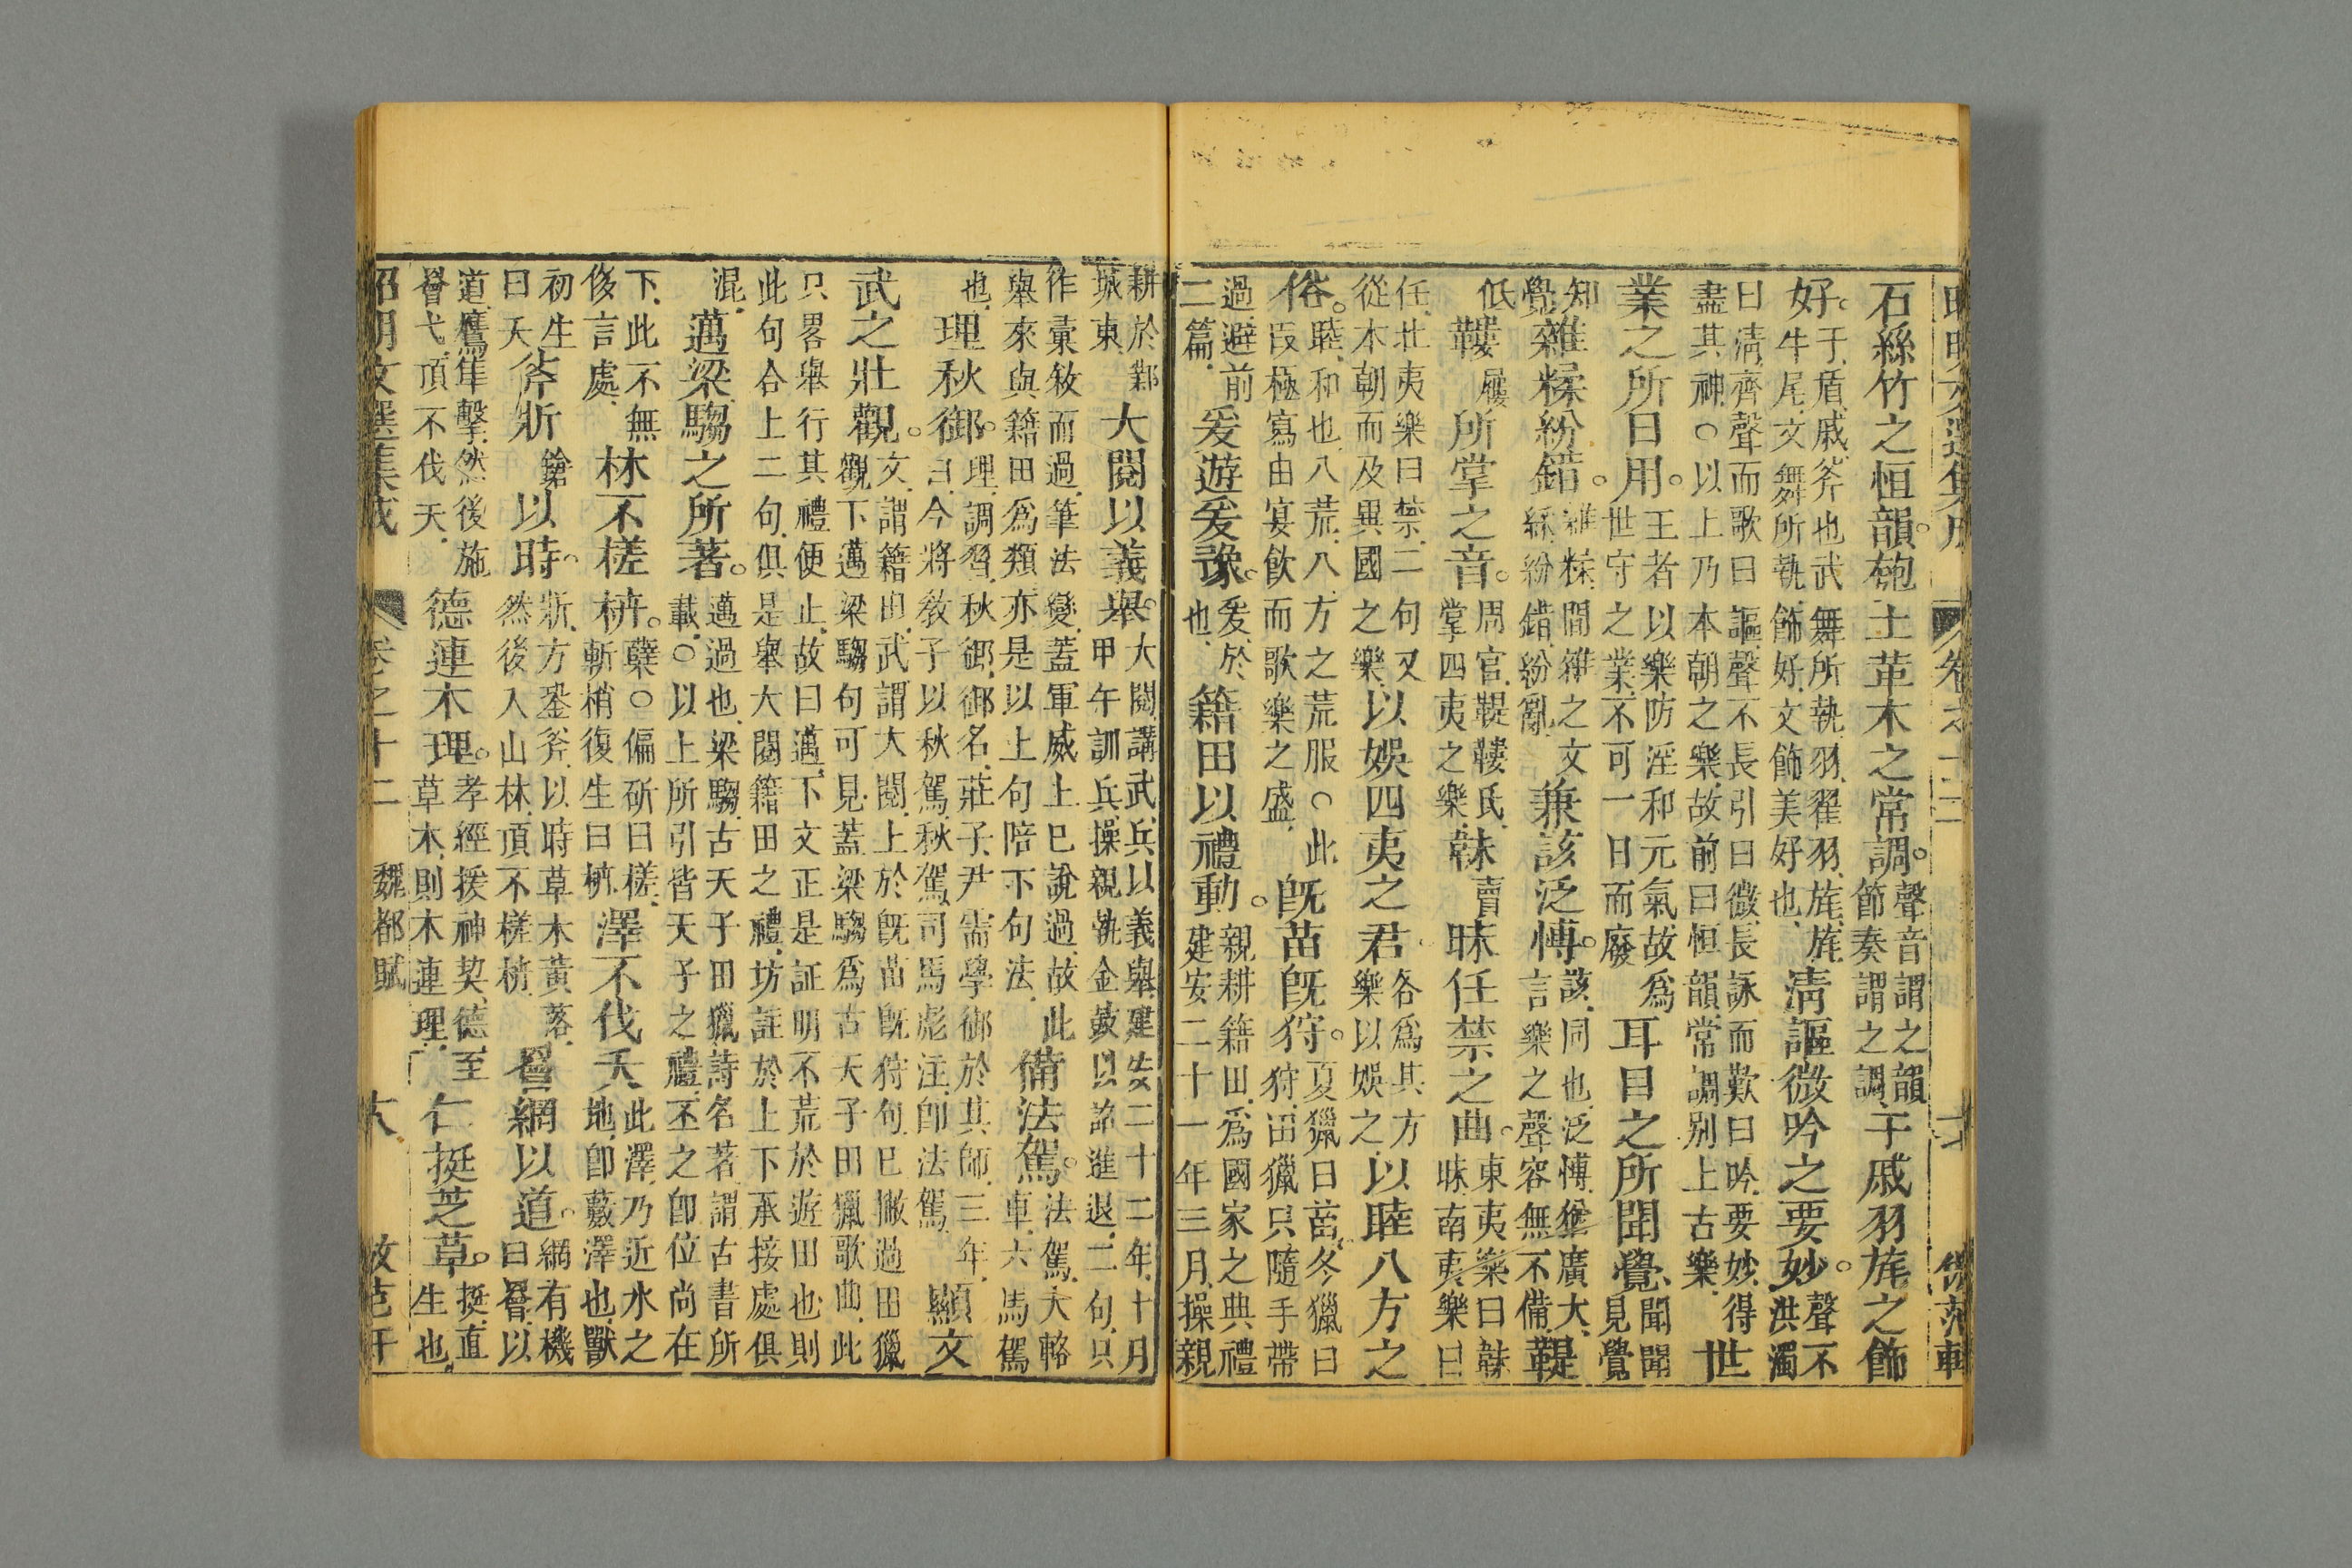 石絲竹之恒韻。匏土革木之常調。聲音謂之韻節奏謂之調干戚羽旄之飾
好。干盾戚斧也武舞所執羽翟羽旄旄牛尾文舞所執飾好文飾美好也清謳微吟之要妙。聲不洪濁
曰清齊聲而歌曰謳聲不長引曰微長詠而歎曰吟要妙得盡其神○以上乃本朝之樂故前曰恒韻常調別上古樂世
業之所日用。王者以樂防淫和元氣故爲世守之業不可一日而廢耳目之所聞覺聞聞見覺
知覺雜糅紛錯。雜糅間雜之文綵紛錯紛亂兼該泛博。該同也泛博猶廣大言樂之聲容無不備鞮
低鞻屨所掌之音。周官鞮鞻氏掌四夷之樂韎賣昧任禁之曲。東夷樂曰韎南夷樂曰
任北夷樂曰禁二句又從本朝而及異國之樂以娛四夷之君。各爲其方樂以娛之以睦八方之
俗。睦和也八荒八方之荒服○此段極寫由宴飲而歌樂之盛既苗既狩。夏獵曰苗冬獵曰狩田獵只隨手帶
過避前二篇爰遊爰豫。爰於也籍田以禮動。親耕籍田爲國家之典禮建安二十一年三月操親
耕於鄴城東大閱以義舉。大閱講武兵以義舉建安二十二年十月甲午訓兵操親執金鼓以詔進退二句只
作彙敘而過筆法變蓋軍威上巳說過故此舉來與籍田爲類亦是以上句陪下句法備法駕。法駕大輅車六馬駕
也理秋御。理調習秋御御名莊子尹需學御於其師三年曰今將敎子以秋駕秋駕司馬彪注卽法駕顯文
武之壯觀。文謂籍田武謂大閱上於既苗既狩句已撇過田獵觀下邁梁騶句可見蓋梁騶爲古天子田獵歌曲此
只畧舉行其禮便止故曰邁下文正是証明不荒於遊田也則此句合上二句俱是舉大閱籍田之禮坊註於上下承接處俱
混邁梁騶之所著。邁過也梁騶古天子田獵詩名著謂古書所載○以上所引皆天子之禮丕之卽位尚在
下此不無後言處林不槎枿。孽○偏斫曰槎斬梢復生曰枿澤不伐夭此澤乃近水之地卽藪澤也獸
初生曰夭斧斨鎗以時。斨方銎斧以時草木黃落然後入山林頂不槎枿罾網以道。網有機曰罾以
道鷹隼擊然後施罾弋頂不伐夭德連木理。孝經援神契德至草木則木連理仁挺芝草。挺直生也
昭明文選集成 卷之十二 魏都賦